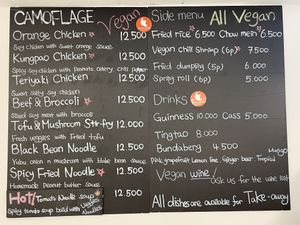 CAMOFLAGE Vegan
Orange Chicken 12.500
Soy chicken with sweet orange sauce
Kungpao Chicken 12.500
Spicy soy chicken with peanuts, celery,
Teriyaki Chicken 12.500
Sweet salty soy chicken
Beef & Broccoli 12.500
Sliced soy meat with broccoli
Tofu & Mushroom Stir-fry 12.000
Fresh veggies with Fried tofu
Black Bean Noodle 12.500
with black bean sauce
Spicy Fried Noodle 12.500
Homemade Peanut butter sauce
Hot! Tomato Noodle soup 12.500
Spicy tomato soup
Side menu All Vegan
Fried rice 6.500 Chow mein 6.500
Vegan chili Shrimp (6p) 7.500
Fried dumpling (5p) 6.000
Spring roll (6p) 5.000
Drinks
Guinness 10.000 Cass 5.000
Tingtao 8.000
Bundaberg 4.500
Mango
Pink grapefruit Lemon lime Ginger beer Tropical
Vegan wine! ask us for the wine list
All dishes are available for Take-away